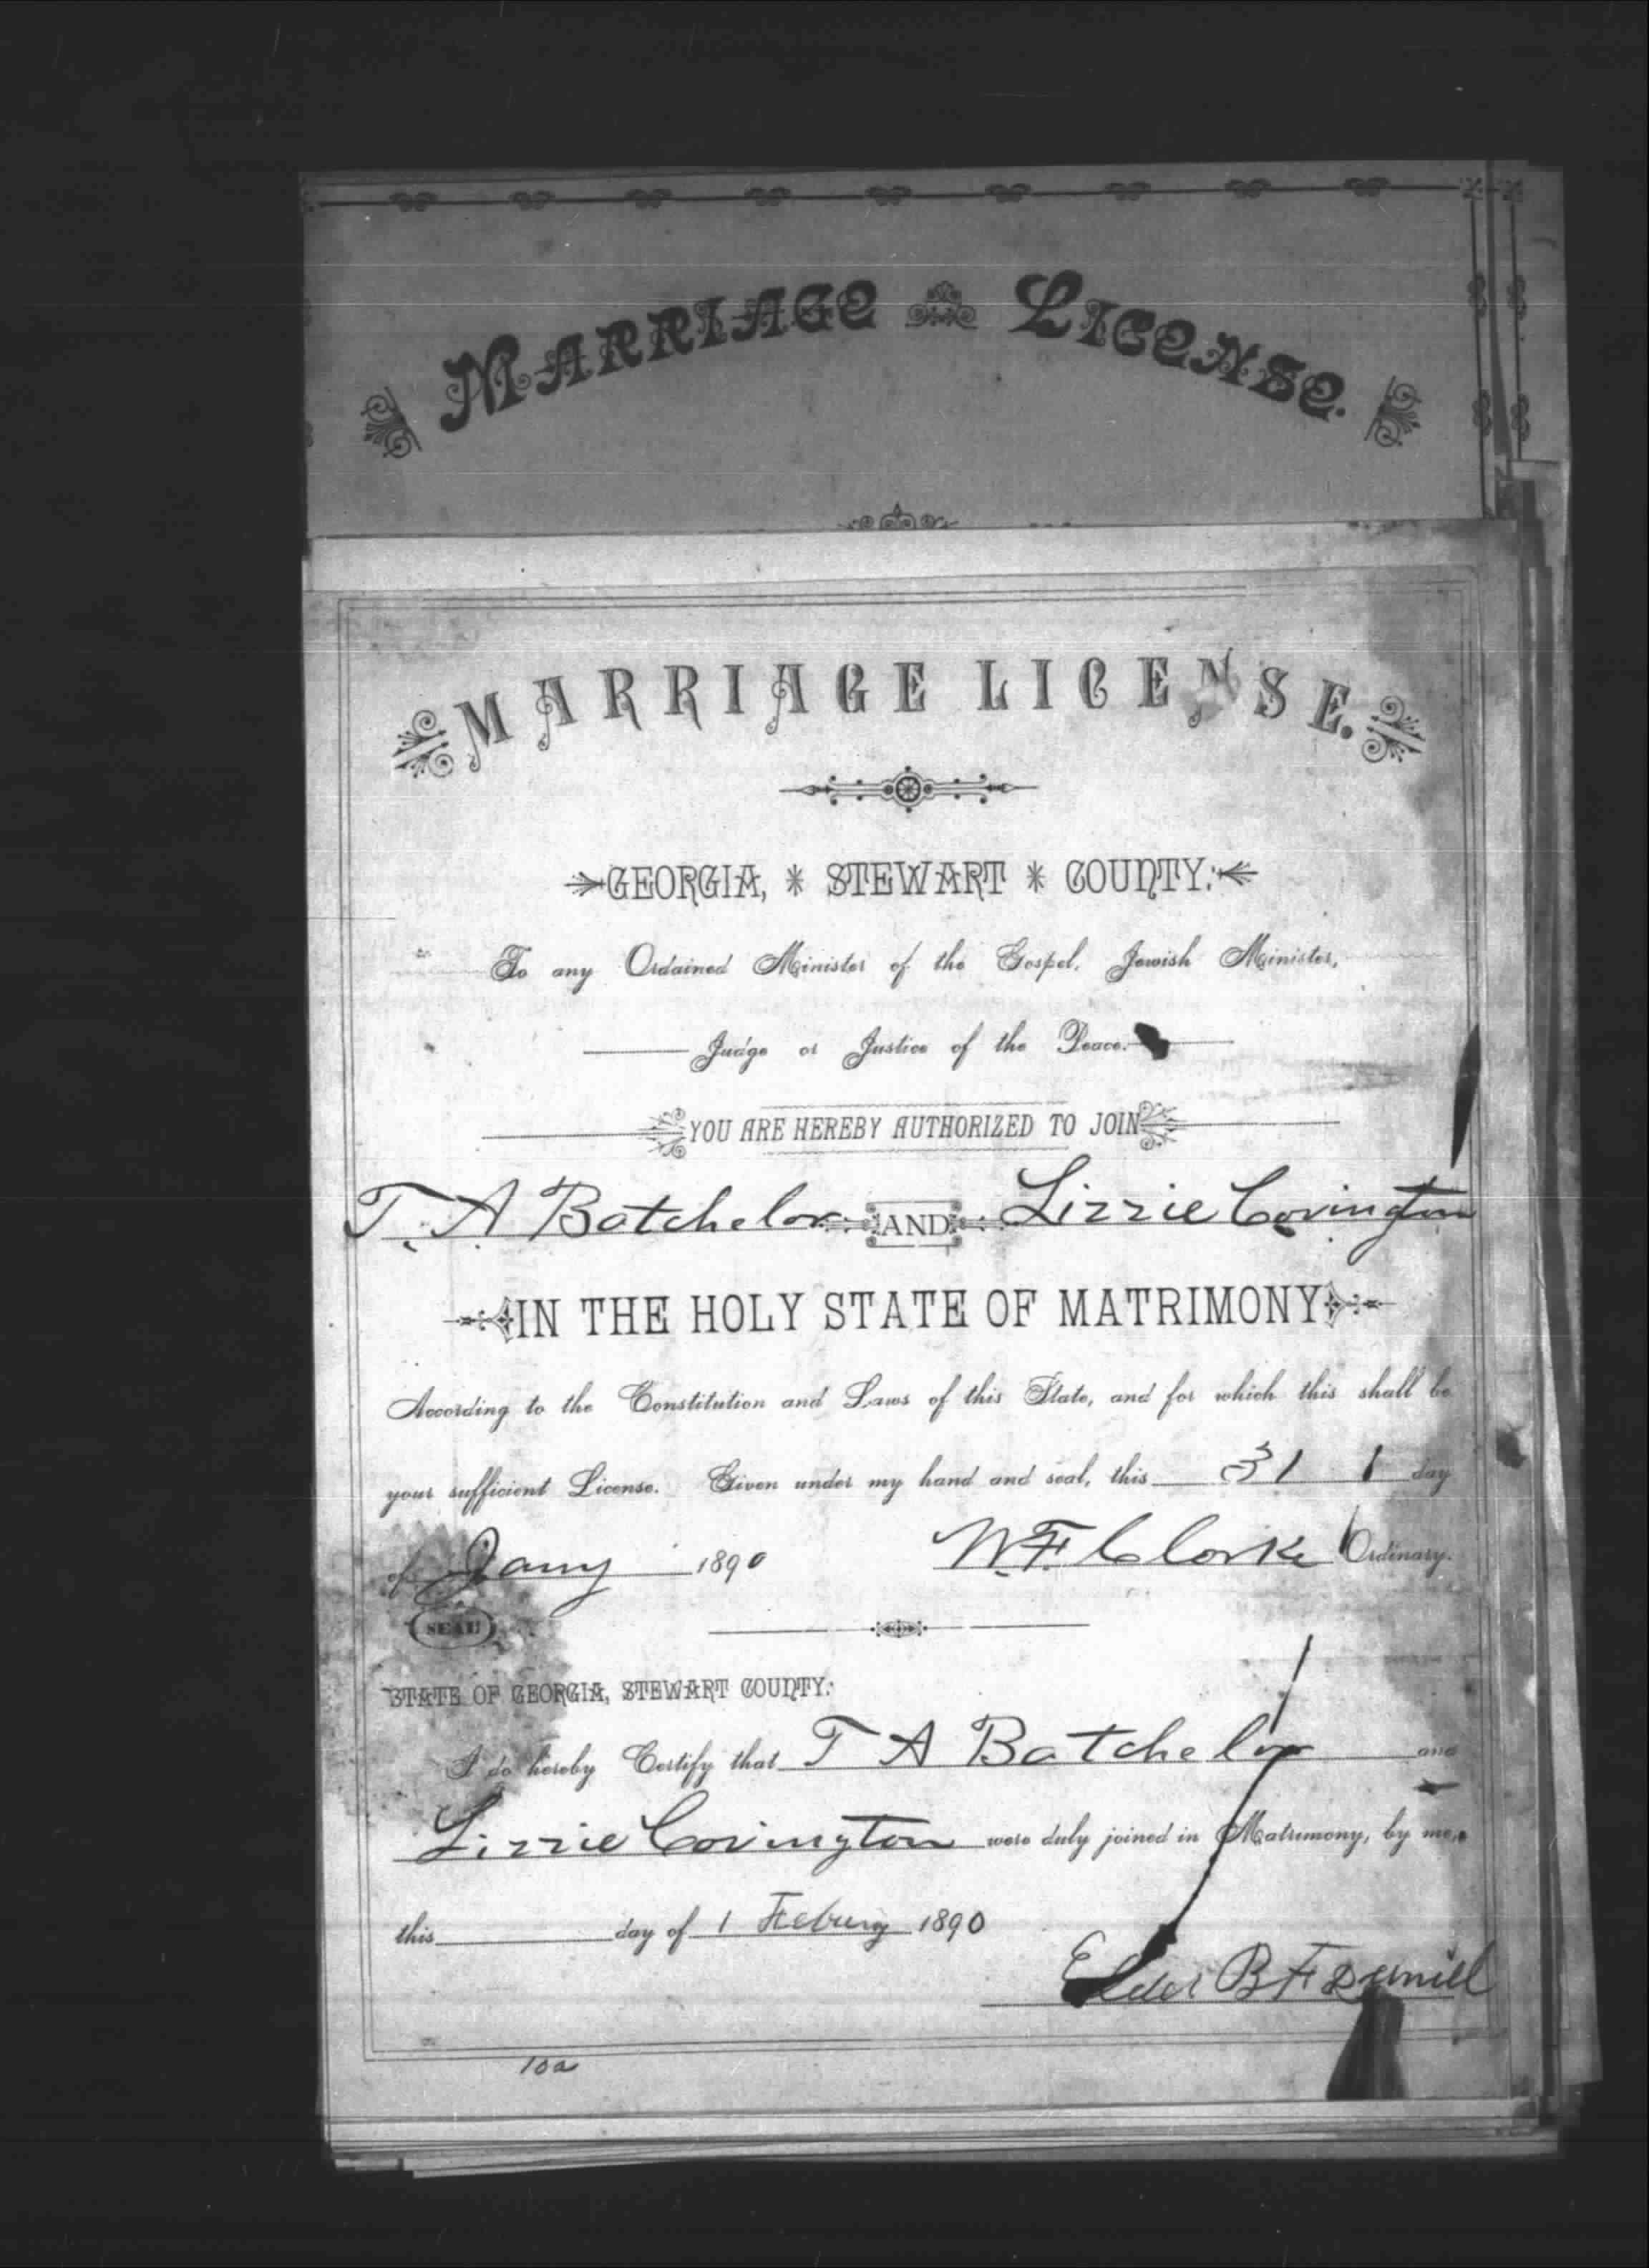 MARRIAGE LICENSE.
MARRIAGE LICENSE.
GEORGIA, * STEWART * COUNTY:
To any Ordained Minister of the Gospel, Jewish Minister,
Judge or Justice of the Peace.
YOU ARE HEREBY AUTHORIZED TO JOIN
T. A. Batchelor AND Lizzie Covington
IN THE HOLY STATE OF MATRIMONY
According to the Constitution and Laws of this State, and for which this shall be
your sufficient License. Given under my hand and seal, this 31 day
of Jany 1890 W. F. Clarke Ordinary.
SEAL
STATE OF GEORGIA, STEWART COUNTY:
I do hereby Certify that T A Batchelor and
Lizzie Covington were duly joined in Matrimony, by me,
this day of 1 Febury 1890
Elder B F
10a